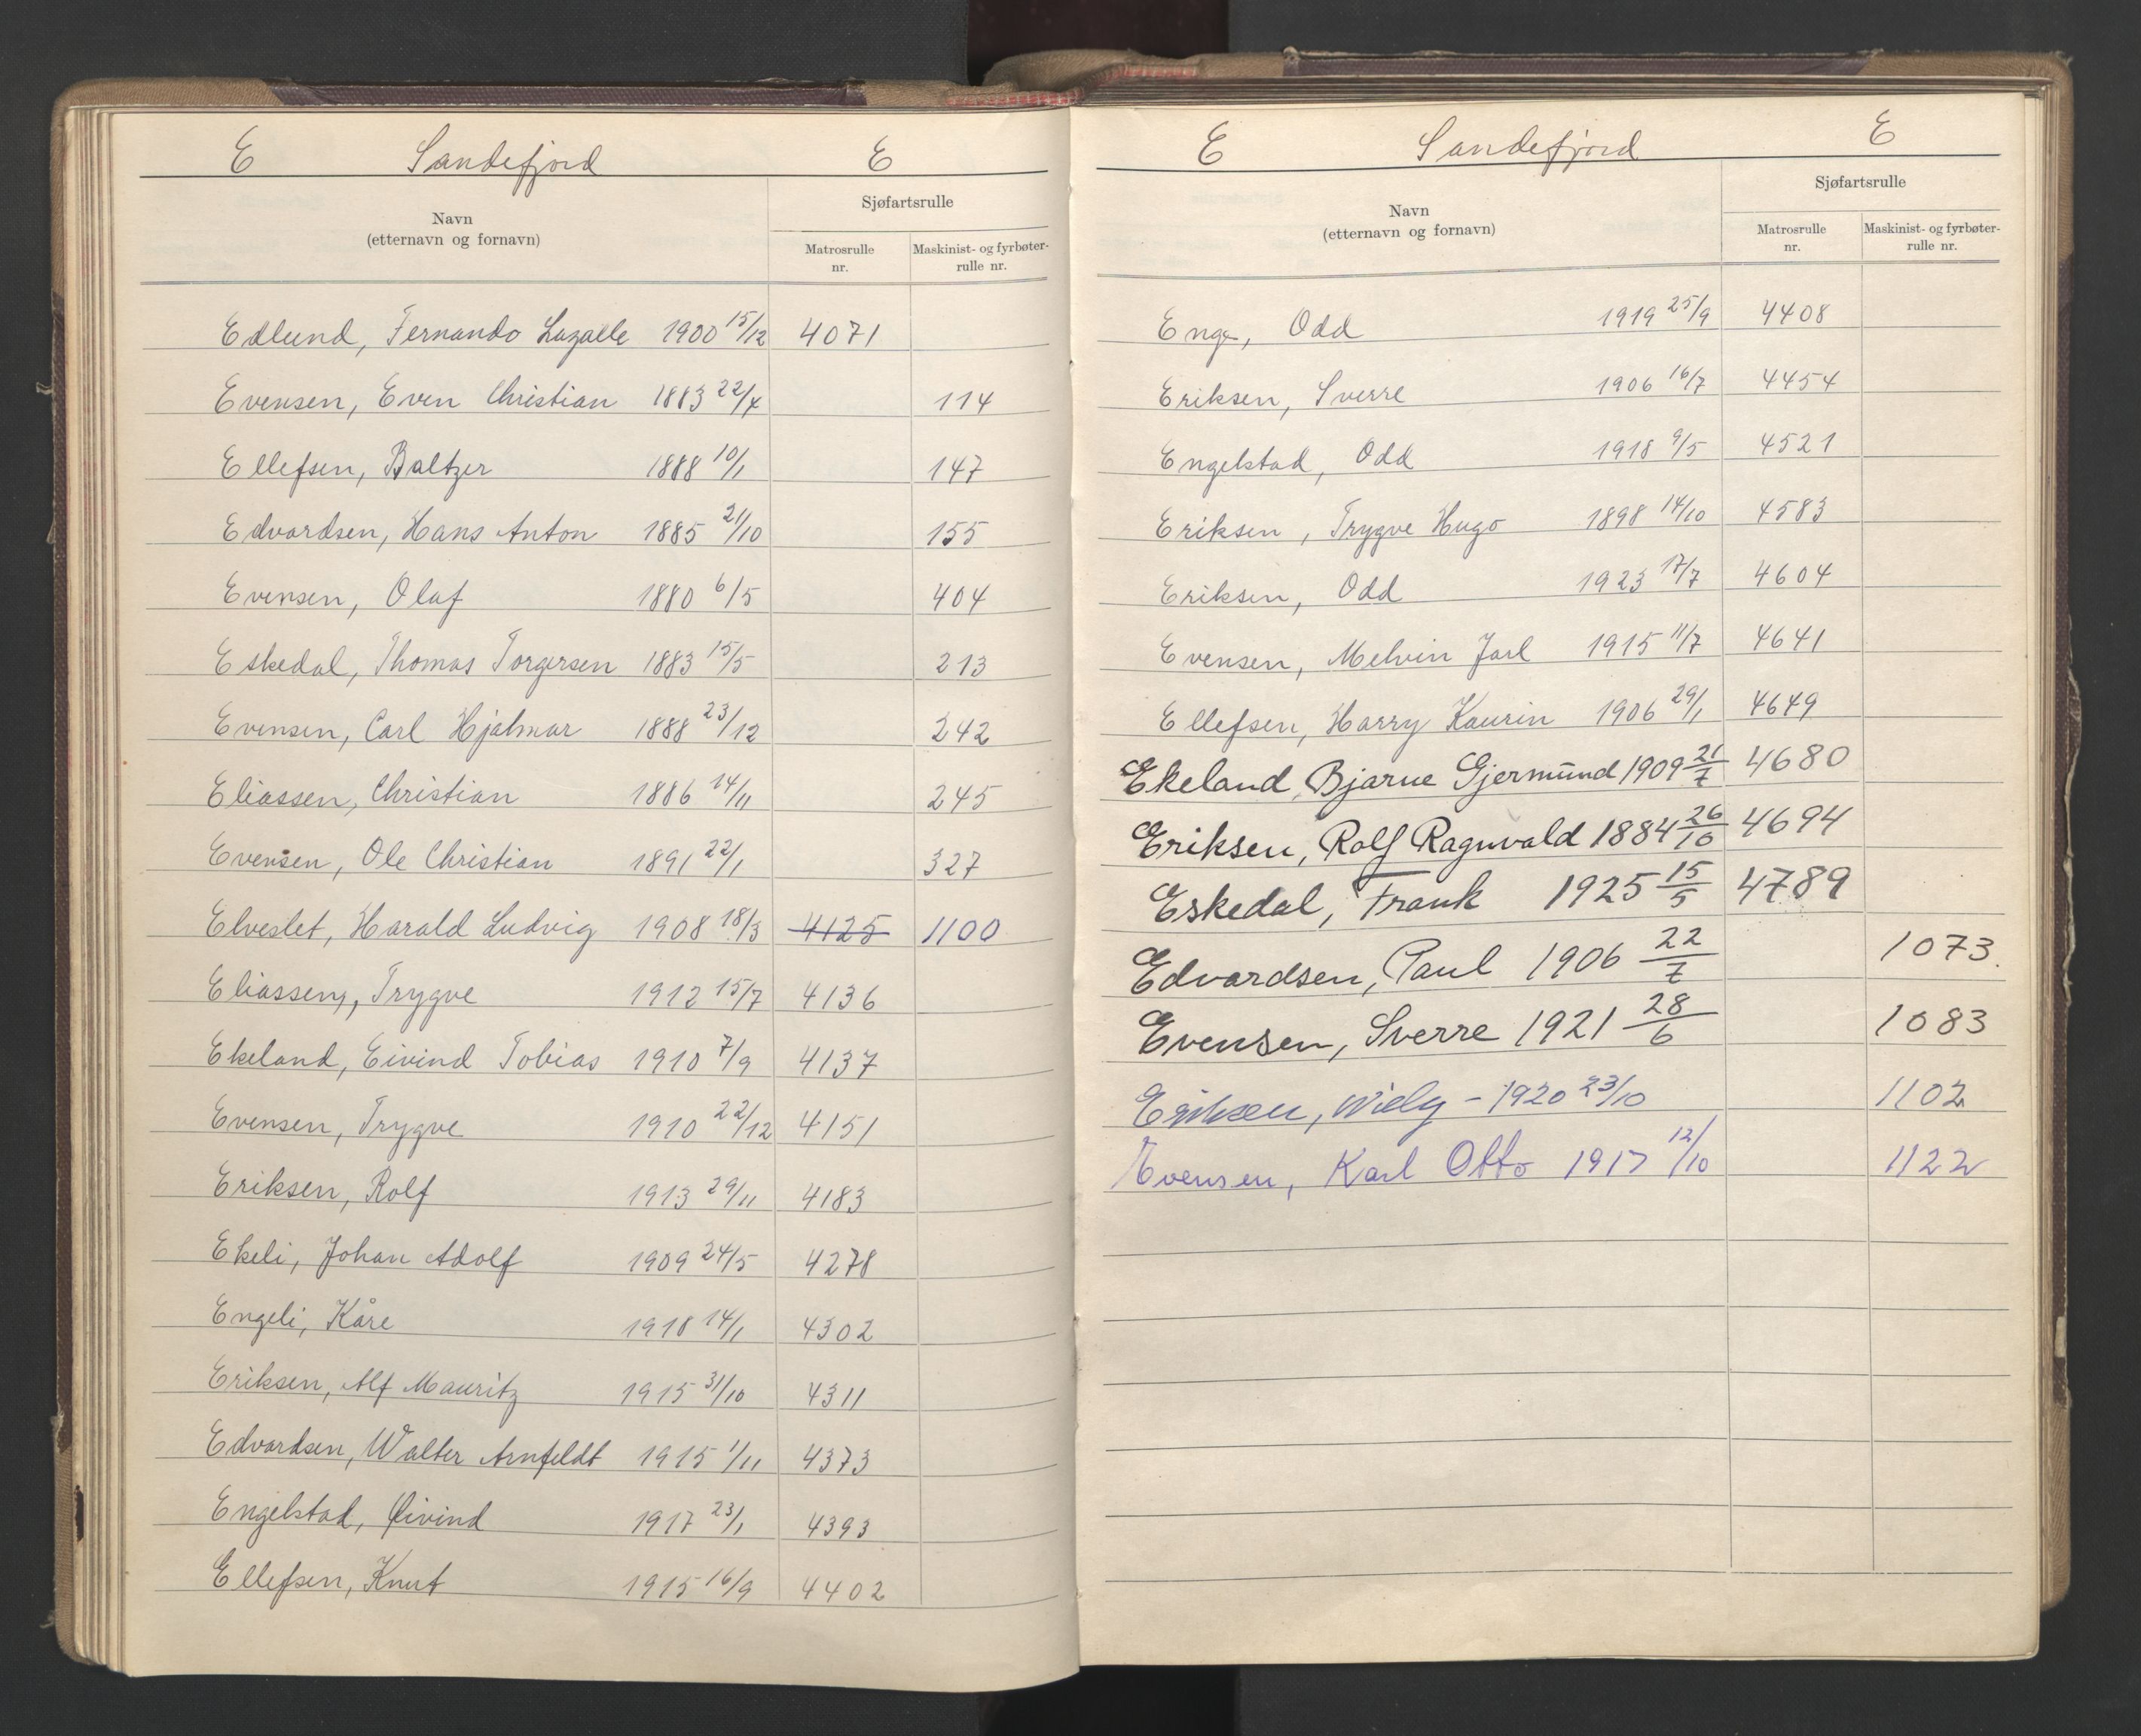 E Sandefjord E
Navn
(etternavn og fornavn)
Sjøfartsrulle
Matrosrulle
nr.
Maskinist- og fyrbøter-
rulle nr.
Edlund, Fernando Lazalle 1900 15/12 4071
Evensen, Even Christian 1883 22/4 114
Ellefsen, Baltzer 1888 10/1 147
Edvardsen, Hans Anton 1885 21/10 155
Evensen, Olaf 1880 6/5 404
Eskedal, Thomas Torgersen 1883 15/5 213
Evensen, Carl Hjalmar 1888 23/12 242
Eliassen, Christian 1886 14/11 245
Evensen, Ole Christian 1891 22/1 327
Elveslet, Harald Ludvig 1908 18/3 4125 1100
Eliassen, Trygve 1912 15/7 4136
Ekeland, Eivind Tobias 1910 7/9 4137
Evensen, Trygve 1910 22/12 4151
Eriksen, Rolf 1913 29/11 4183
Ekeli, Johan Adolf 1909 24/5 4278
Engeli, Kåre 1918 14/1 4302
Eriksen, Alf Mauritz 1915 31/10 4311
Edvardsen, Walter Arnfeldt 1915 1/11 4373
Engelstad, Øivind 1917 23/1 4393
Ellefsen, Knut 1915 16/9 4402
E Sandefjord E
Navn
(etternavn og fornavn)
Sjøfartsrulle
Matrosrulle
nr.
Maskinist- og fyrbøter-
rulle nr.
Enge, Odd 1919 25/9 4408
Eriksen, Sverre 1906 16/7 4454
Engelstad, Odd 1918 9/5 4521
Eriksen, Trygve Hugo 1898 14/10 4583
Eriksen, Odd 1923 17/7 4604
Evensen, Melvin Jarl 1915 11/7 4641
Ellefsen, Harry Kaurin 1906 29/1 4649
Ekeland, Bjarne Gjermund 1909 21/7 4680
Eriksen, Rolf Ragnvald 1884 26/10 4694
Eskedal, Frank 1925 15/5 4789
Edvardsen, Paul 1906 22/7 1073.
Evensen, Sverre 1921 28/6 1083
Eriksen, Wiely - 1920 23/10 1102
Evensen, Karl Otto 1917 12/10 1122